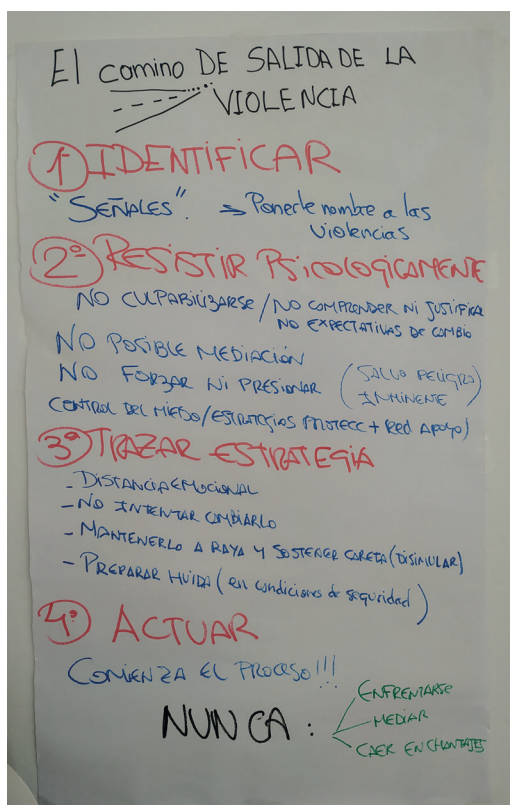 El camino DE SALIDA DE LA
VIOLENCIA
1º IDENTIFICAR
"SEÑALES". => Ponerle nombre a las
violencias
2º RESISTIR PSICOLOGICAMENTE
NO CULPABILIZARSE / NO COMPRENDER NI JUSTIFICAR
NO EXPECTATIVAS DE CAMBIO
NO POSIBLE MEDIACIÓN
NO FORZAR NI PRESIONAR (SALVO PELIGRO
INMINENTE)
CONTROL DEL MIEDO/ESTRATEGIAS PROTECC + Red APOYO)
3º TRAZAR ESTRATEGIA
- DISTANCIA EMOCIONAL
- NO INTENTAR CAMBIARLO
- MANTENERLO A RAYA Y SOSTENER CARETA (DISIMULAR)
- PREPARAR HUIDA (en condiciones de seguridad)
4º ACTUAR
COMIENZA EL PROCESO!!!
NUNCA:
ENFRENTARSE
- MEDIAR
CAER EN CHANTAJES